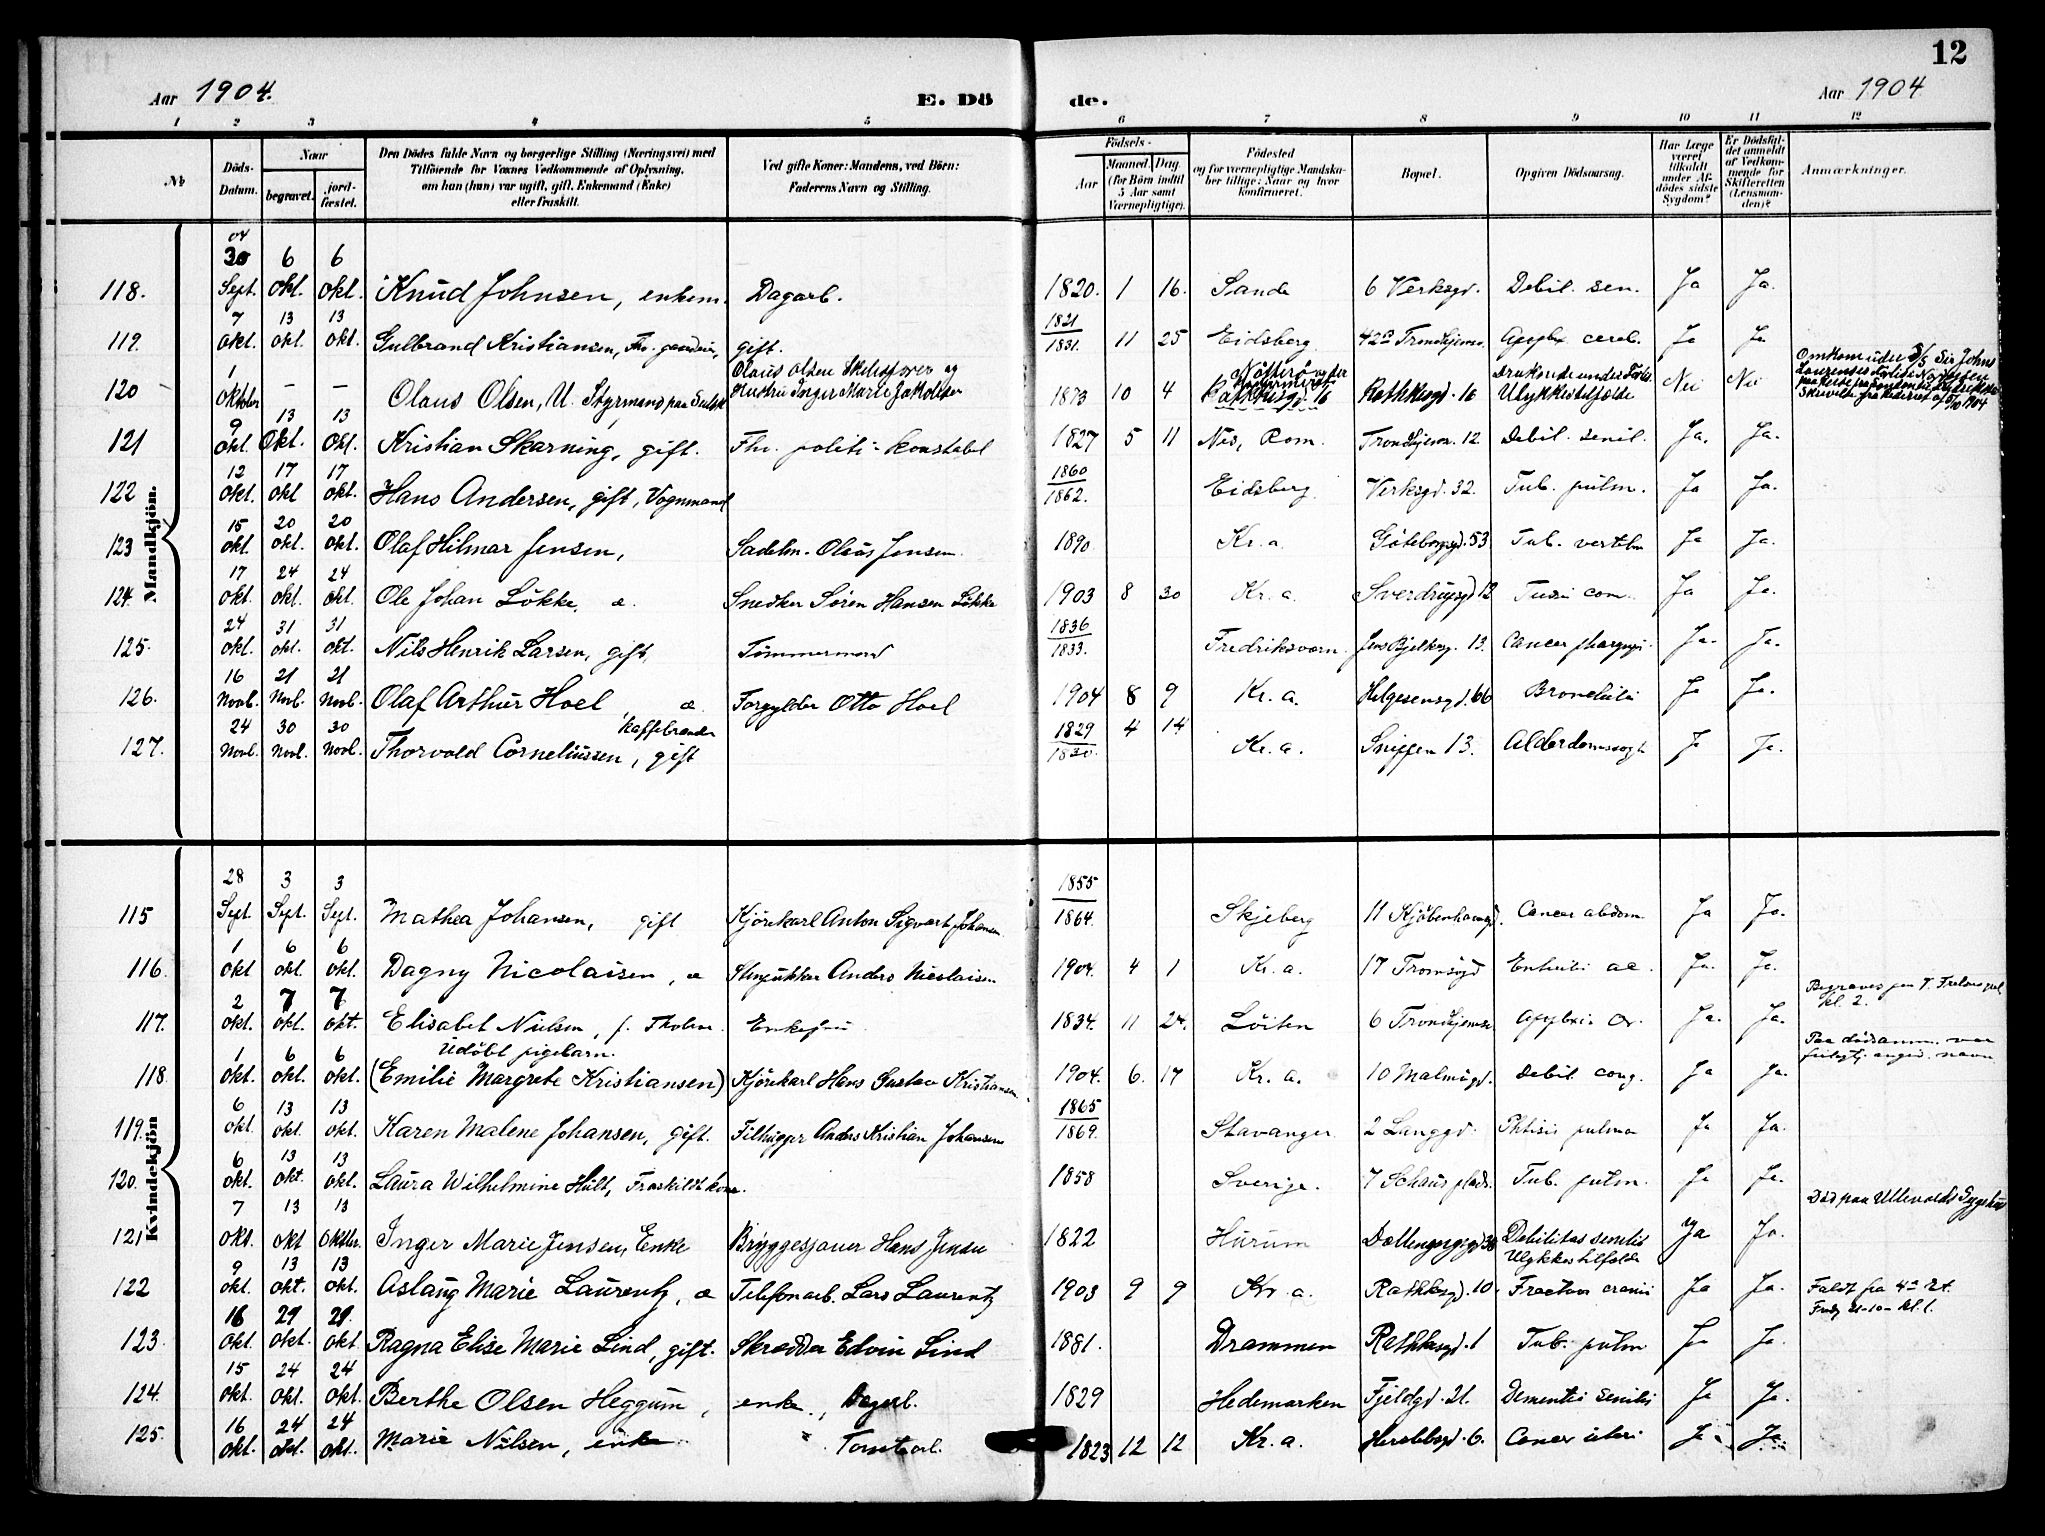 12
Aar 1904. E. Dö de. Aar 1904
1 2 3 4 5 6 7 8 9 10 11 12
№ Döds-Datum. Naar begravet. jord-fæstet. Den Dödes fulde Navn og borgerlige Stilling (Næringsvei) med Tilföiende for Voxnes Vedkommende af Oplysning, om han (hun) var ugift, gift, Enkemand (Enke) eller fraskilt. Ved gifte Koner: Mandens, ved Börn: Faderens Navn og Stilling. Födsels- Aar Maaned Dag. (for Börn indtil 5 Aar samt Værnepligtige). Födested og for værnepligtige Mandskaber tillige: Naar og hvor konfirmeret. Bopæl. Opgiven Dödsaarsag. Har Læge været tilkaldt under Afdödes sidste Sygdom? Er Dödsfaldet anmeldt af Vedkommende for Skifteretten (Lensmanden)? Anmærkninger.
Mandkjön.
118. 04 30 Sept. 6 Okt. 6 Okt. Knud Johnsen, enkem. Dagarb. 1820. 1 16. Sande 6 Verksgd. Debil. sen. Ja Ja.
119. 7 Okt. 13 Okt. 13 Okt. Gulbrand Kristiansen, gift. 1821 1831. 11 25 Eidsberg 42 Trondhjemsv. Apoplex cereb. Ja Ja
120 1 Oktober – – Olaus Olsen, U. Styrmand paa Olaus Olsen og Hustru Inger Marie 1873 10 4 Rathkesgd. 16 Rathkesgd. 16 Ulykkestilfælde Nei Nei
121 9 Okt. 13 Okt. 13 Okt. Kristian Skarning, gift. Fhv. politi-konstabel 1827 5 11 Nes, Rom. Trondhjemsv. 12 Debil. senil. Ja. Ja.
122 12 Okt. 17 Okt 17 Okt. Hans Andersen, gift, Vognmand 1860 1862. Eidsberg Verksgd. 32. Tub. pulm. Ja Ja.
123 15 Okt. 20 Okt. 20 Okt. Olaf Hilmar Jensen, Sadelm. Olaus Jensen. 1890 Kr. a. Göteborggd. 53 Tub. vertebr Ja Ja.
124. 17 Okt. 24 Okt. 24 Okt. Ole Johan Lökke, æ. Snedker Sören Hansen Lökke 1903 8 30 Kr. a. Sverdrupsgd 12 Tussi con. Ja Ja.
125. 24 Okt. 31 Okt. 31 Okt. Nils Henrik Larsen, gift, Tömmermand 1836 1833. Fredriksværn. Jens Bjelkesg. 13. Cancer pharyngi Ja. Ja.
126. 16 Novb. 21 Novb. 21 Novb. Olaf Arthur Hoel, æ. Forgylder Otto Hoel 1904 8 9 Kr. a. Helgesensgd. 66 Bronchiti Ja Ja.
127. 24 Novb. 30 Novb. 30 Novb. Thorvald Corneliussen, gift Kaffebrænder 1829 1830. 4 14 Kr. a. Snippen 13. Alderdomssvagh Ja Ja.
Kvindekjön
115 28 Sept. 3 Sept. 3 Sept. Mathea Johansen, gift Kjörekarl Anton Sigvart Johansen 1855 1864. Skjeberg 11 Kjöbenhavngd. Cancer abdom. Ja Ja.
116. 1 Okt 6 Okt. 6 Okt. Dagny Nicolaisen, æ Stenhukker Anders Nicolaisen 1904. 4 1 Kr. a. 17 Tromsögd Enteriti ac. Ja. Ja.
117. 2 Okt. 7 Okt. 7 Okt. Elisabet Nielsen, f. Enkefru 1834. 11 24. Löiten 6 Trondhjemsv. Apoplexi Ja. Ja. Begraves kl. 2.
118. 1 Okt. 6 Okt. 6 Okt. Udöbt pigebarn. (Emilie Margrete Kristiansen) Kjörekarl Hans Gustav Kristiansen 1904. 6. 17 Kr. a. 10 Malmögd. Debil cong. Ja Ja. Paa dödsanm. var angivet navn
119. 6 Okt. 13 Okt. 13 Okt. Karen Malene Johansen, gift. Filhugger Anders Kristian Johansen 1865 1869. Stavanger. 2 Langgd. Phtisis pulmon Ja Ja.
120. 6 Okt. 13 Okt 13 Okt. Laura Wilhelmine Hult, Fraskilt kone. 1858 Sverige. 7 Schous plads. Tub. pulm. Ja Ja.
121 7 Okt. 13 Okt 13 Oktbr. Inger Marie Jensen, Enke Bryggesjauer Hans Jensen 1822 Hurum Dælenenggd 38 Debilitas senilis Ja Ja. Död paa Ullevolds Sygehus
122 9 Okt. 13 Okt. 13 Okt. Aslaug Marie Laurentz, æ Telefonarb. Lars Laurentz 1903 9 9 Kr. a. Rathkesgd. 10. Ulykkestilfælde Fractur cranii Ja Ja Faldt fra 4de Et.
123. 16 Okt. 29 Okt. 29. Okt Ragna Elise Marie Lind, gift. Skrædder Edvin Lind 1881. Drammen Rathkesgd. 1 Tub. pulm Ja Ja.
124. 15 Okt. 24 Okt. 24 Okt. Berthe Olsen Heggum, enke, Dagarb. 1829 Hedemarken Fjeldgd. 21. Dementia senilis Ja Ja.
125. 16 Okt. 24 Okt. 24 Okt. Marie Nilsen, enke " Tomtearb. 1823 12 12 Kr. a. Herslebsgd. 6. Cancer uteri Ja Ja